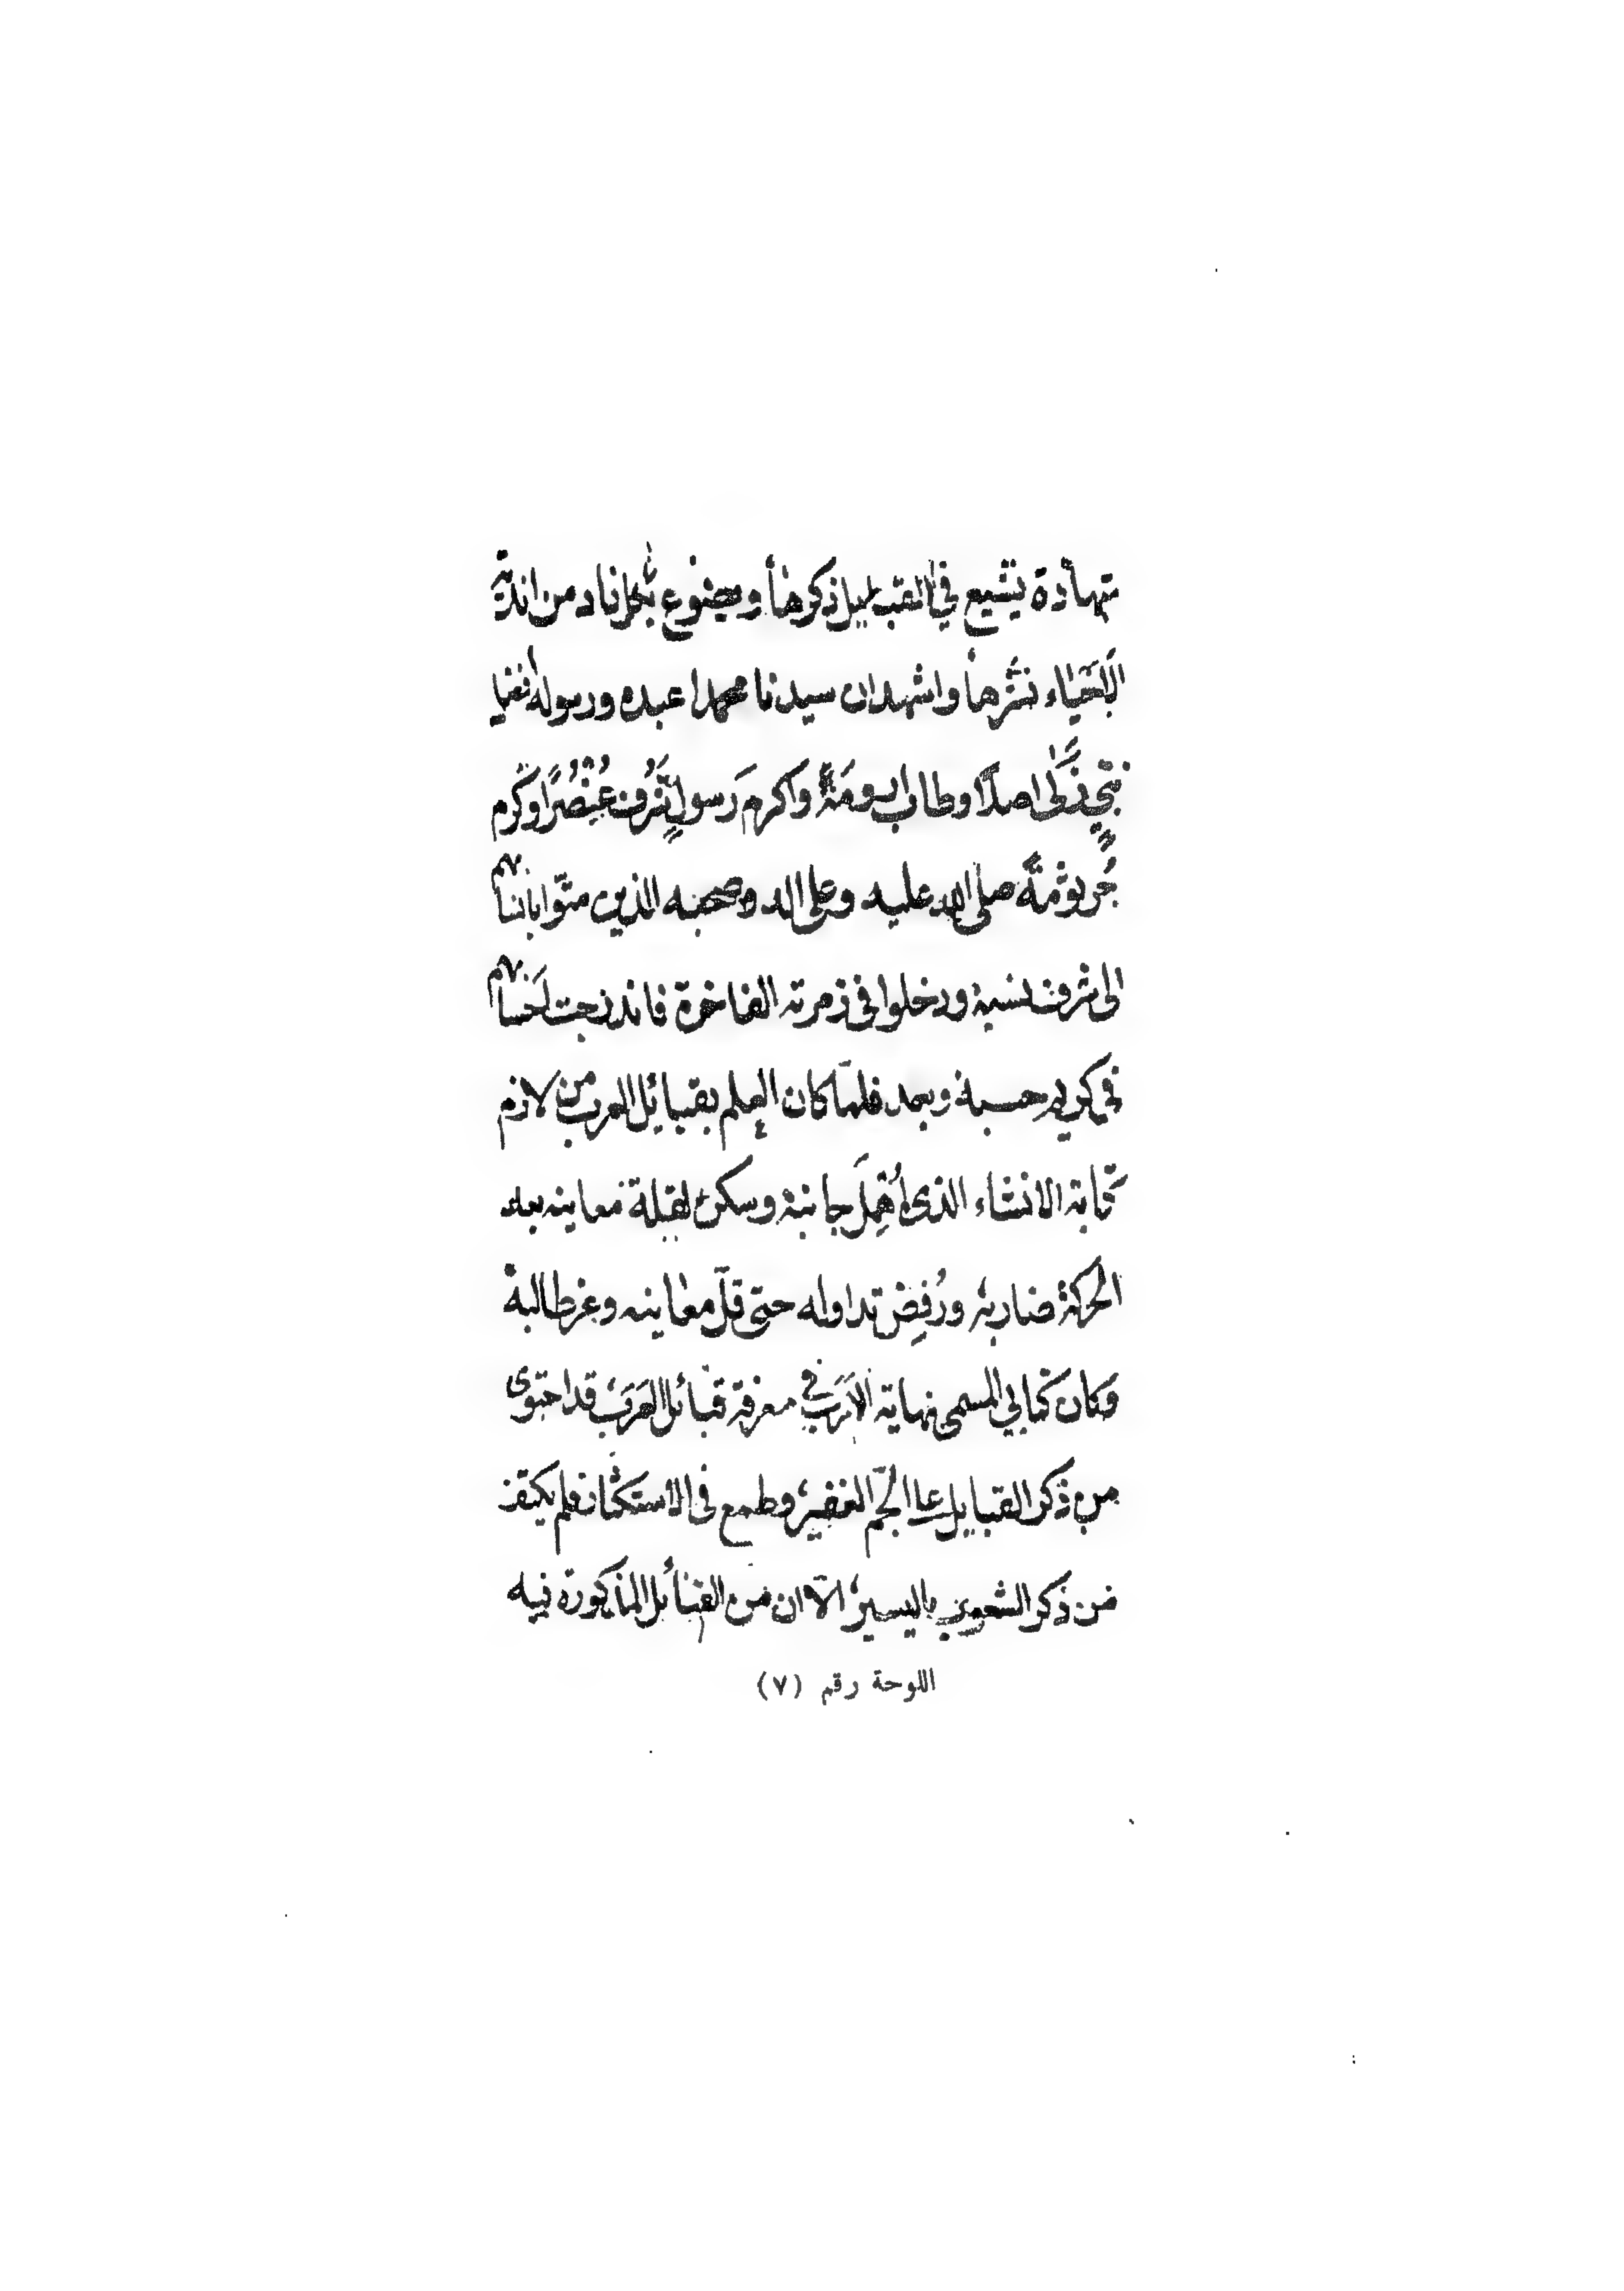 شهادة يشيع في القبايل ذكرها ويضوع بكل ناد من اندية
الاحياء نشرها واشهد ان سيدنا محمدا عبده ورسوله
نبي زكى اصلا وطاب ارومة واكرم رسول شرف عنصرا وكرم
جرثومة صلى الله عليه وعلى اله وصحبه الذين متوا باننسابهم
الى شرف نسبه ودخلوا في زمرته الفاخرة فاندرجت احسابهم
في كريم حسبه وبعد فلما كان العلم بقبائل العرب من لازم
كتابة الانشاء الذي اهمل جانبه وسكن لقلة معاينه بعد
الحركة ضاربه ورفض تداوله حتى قل معاينه وعز طالبه
وكان كتابي المسمى نهاية الارب في معرفة قبائل العرب قد احتوى
من ذكر القبايل على الجم الغفير وطمع في الاستكثار فلم يكتف
من ذكر الشعوب باليسير الا ان من القبائل المذكورة فيه
اللوحة رقم (٧)